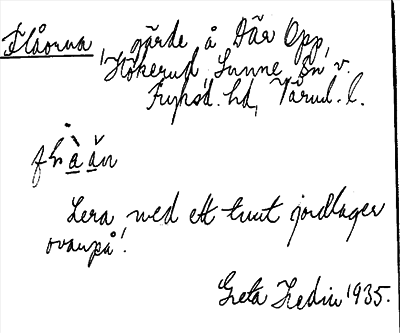 Flåorna, gärde å Där Opp,
Hökerud, Sunne sn v.
Fryksd. hd, Värml. l.
Lera med ett tunt jordlager
ovanpå!
Greta Hedin 1935.